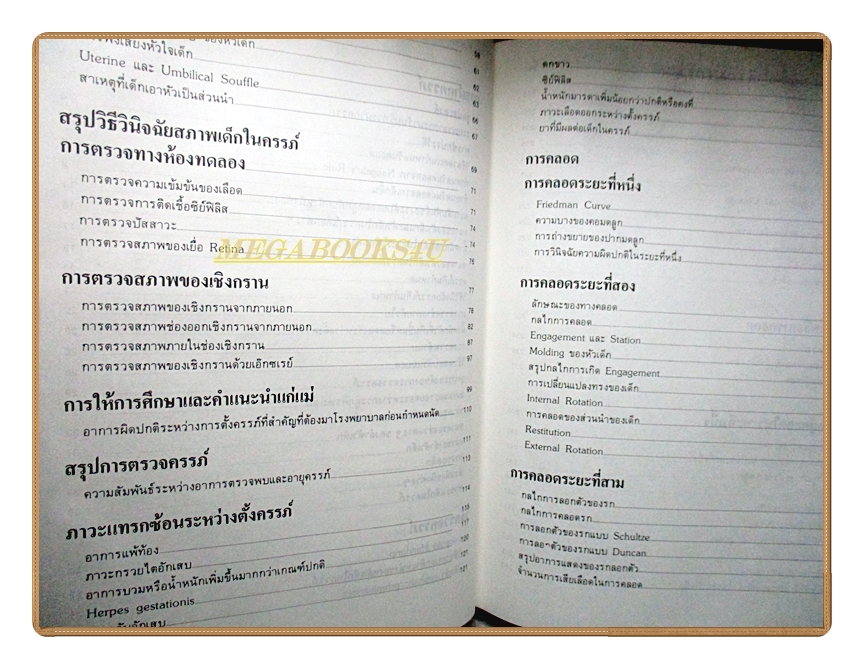 การฟังเสียงหัวใจเด็ก
Uterine และ Umbilical Souffle
สาเหตุที่เด็กเอาหัวเป็นส่วนนำ
สรุปวิธีวินิจฉัยสภาพเด็กในครรภ์
การตรวจทางห้องทดลอง
การตรวจความเข้มข้นของเลือด
การตรวจการติดเชื้อซิฟิลิส
การตรวจปัสสาวะ
การตรวจสภาพของเยื่อ Retina
MEGABOOKS4U
การตรวจสภาพของเชิงกราน
การตรวจสภาพของเชิงกรานจากภายนอก
การตรวจสภาพช่องออกเชิงกรานจากภายนอก
การตรวจสภาพภายในช่องเชิงกราน
การตรวจสภาพของเชิงกรานด้วยเอ๊กซเรย์
การให้การศึกษาและคำแนะนำแก่แม่
อาการผิดปกติระหว่างการตั้งครรภ์ที่สำคัญที่ต้องมาโรงพยาบาลก่อนกำหนดนัด 110
สรุปการตรวจครรภ์
ความสัมพันธ์ระหว่างอาการตรวจพบและอายุครรภ์
ภาวะแทรกซ้อนระหว่างตั้งครรภ์
อาการแพ้ท้อง
ภาวะกรวยไตอักเสบ
อาการบวมหรือน้ำหนักเพิ่มขึ้นมากกว่าเกณฑ์ปกติ
Herpes gestationis
ตกขาว
ซิฟิลิส
น้ำหนักมารดาเพิ่มน้อยกว่าปกติหรือคงที่
ภาวะเลือดออกระหว่างตั้งครรภ์
ยาที่มีผลต่อเด็กในครรภ์
การคลอด
การคลอดระยะที่หนึ่ง
Friedman Curve
ความบางของคอมดลูก
การถ่างขยายของปากมดลูก
การวินิจฉัยความผิดปกติในระยะที่หนึ่ง
การคลอดระยะที่สอง
ลักษณะของทางคลอด
กลไกการคลอด
Engagement และ Station
Molding ของหัวเด็ก
สรุปกลไกการเกิด Engagement
การเปลี่ยนแปลงทรงของเด็ก
Internal Rotation
การคลอดของส่วนนำของเด็ก
Restitution
External Rotation
การคลอดระยะที่สาม
กลไกการลอกตัวของรก
กลไกการคลอดรก
การลอกตัวของรกแบบ Schultze
การลอกตัวของรกแบบ Duncan
สรุปอาการแสดงของรกลอกตัว
จำนวนการเสียเลือดในการคลอด